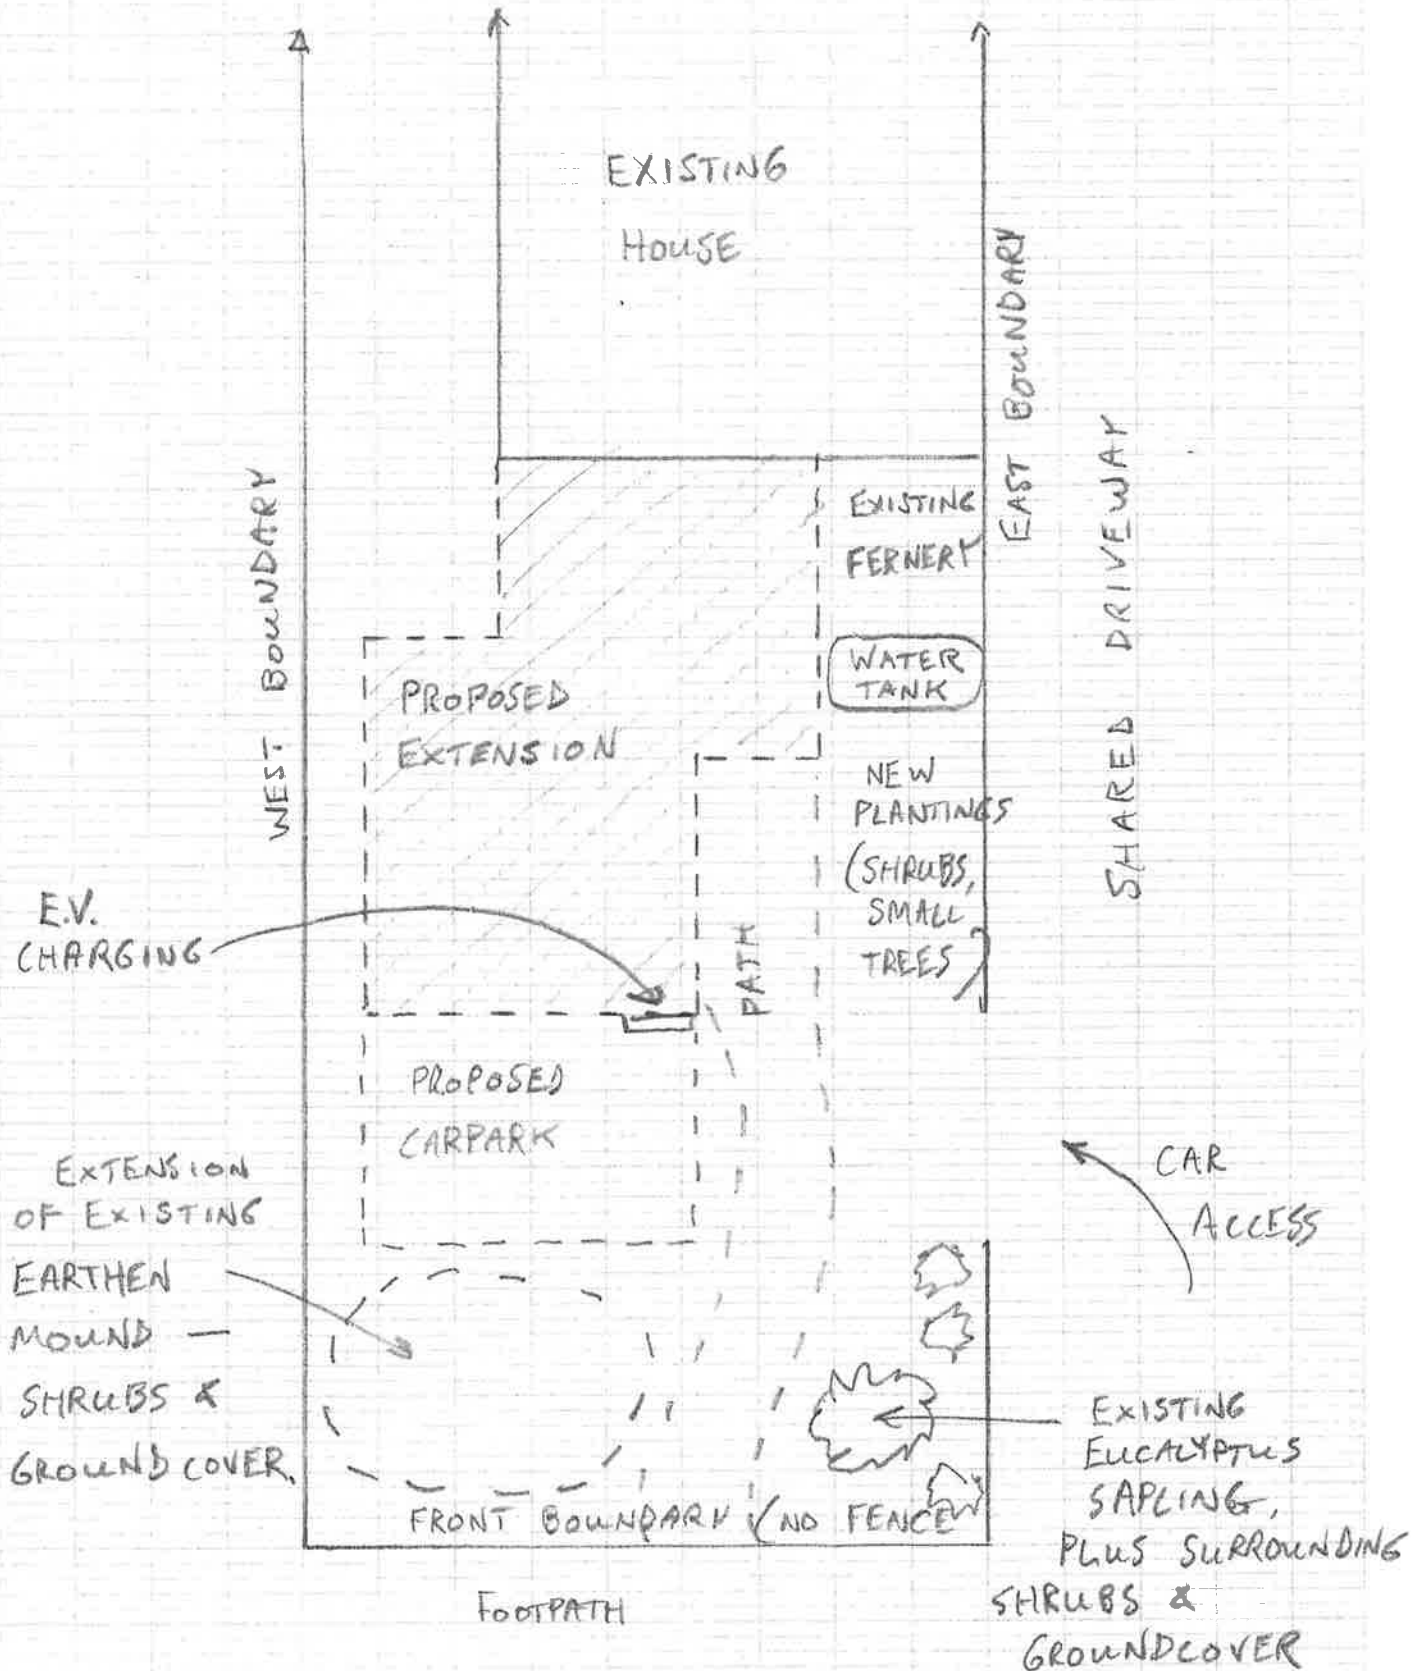 EXISTING
HOUSE
EAST BOUNDARY
WEST BOUNDARY
SHARED DRIVEWAY
EXISTING
FERNERY
WATER
TANK
PROPOSED
EXTENSION
NEW
PLANTINGS
(SHRUBS,
SMALL
TREES)
E.V.
CHARGING
PATH
PROPOSED
CARPARK
CAR
ACCESS
EXTENSION
OF EXISTING
EARTHEN
MOUND —
SHRUBS &
GROUNDCOVER.
EXISTING
EUCALYPTUS
SAPLING,
PLUS SURROUNDING
SHRUBS &
GROUNDCOVER
FRONT BOUNDARY (NO FENCE
FOOTPATH